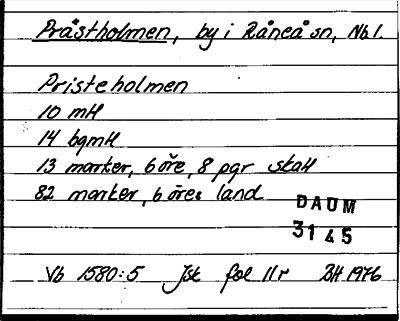 Prästholmen, by i Råneå sn, Nb l.
Pristeholmen
10 mtl
14 bgmtl
13 marker, 6 öre, 8 pgr skatt
82 marker, 6 öres land
DAUM
3145
Vb 1580:5 Jsk fol 11r BH 1976